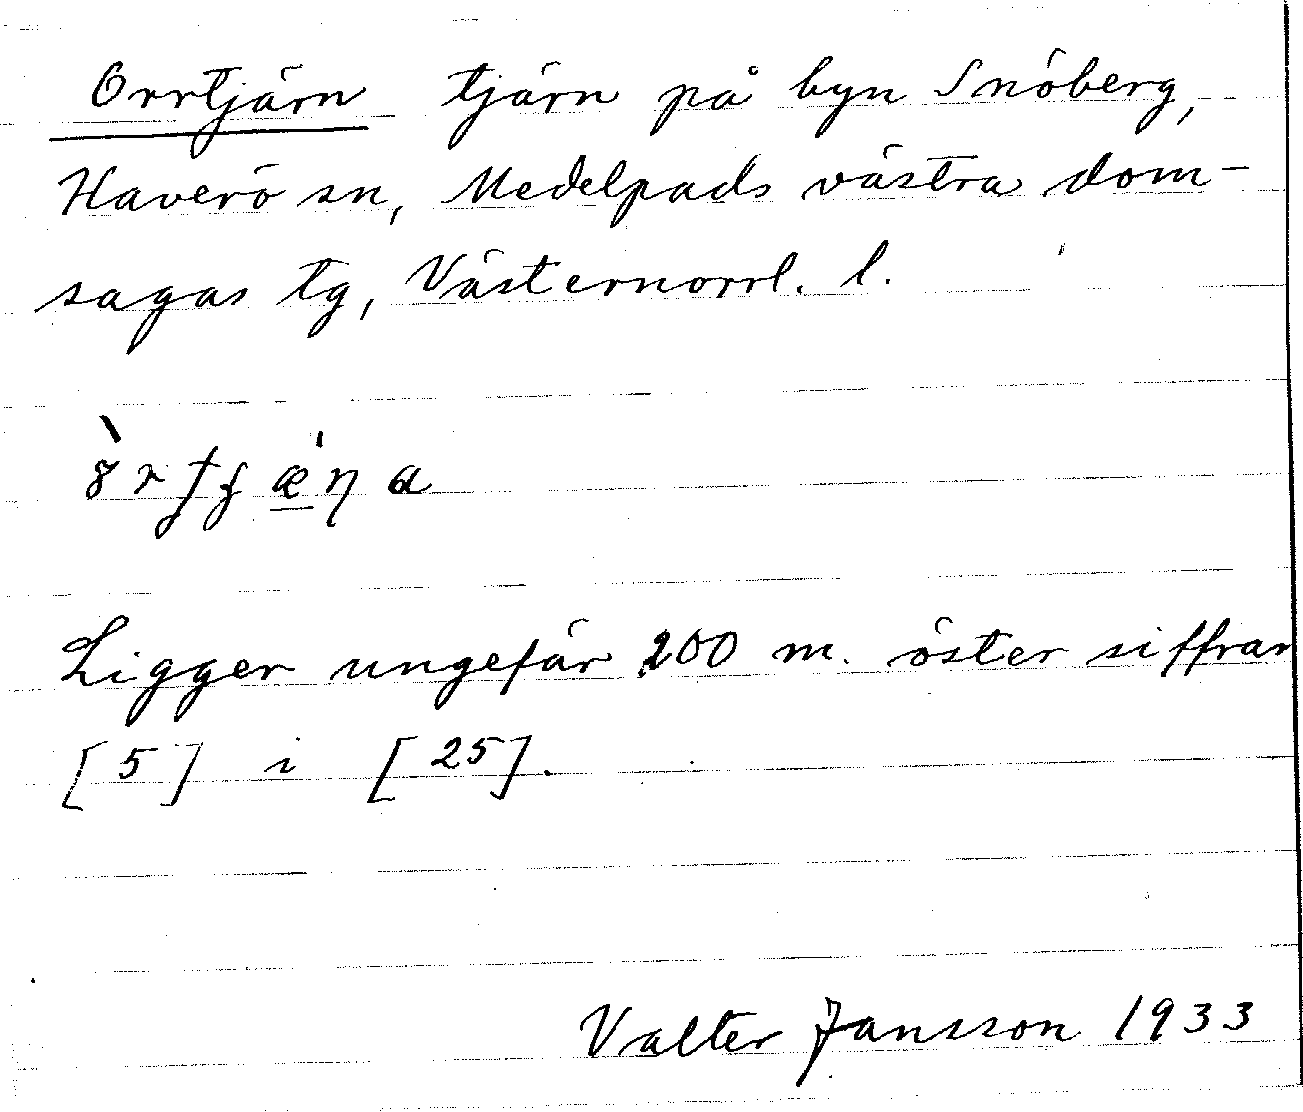 Orrtjärn tjärn på byn Snöberg,
Haverö sn, Medelpads västra dom-
sagas tg, Västernorrl. l.
Ligger ungefär 200 m. öster siffran
[5] i [25].
Valter Jansson 1933